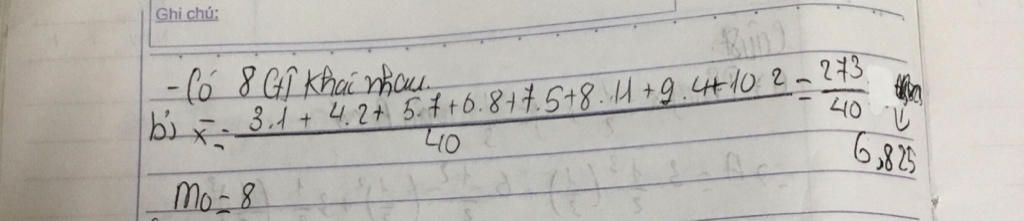 Ghi chú:
- Có 8 GT khác nhau.
b) x̄ = (3.1 + 4.2 + 5.7 + 6.8 + 7.5 + 8.11 + 9.4 + 10.2) / 40 = 273 / 40
↓
6,825
Mo = 8